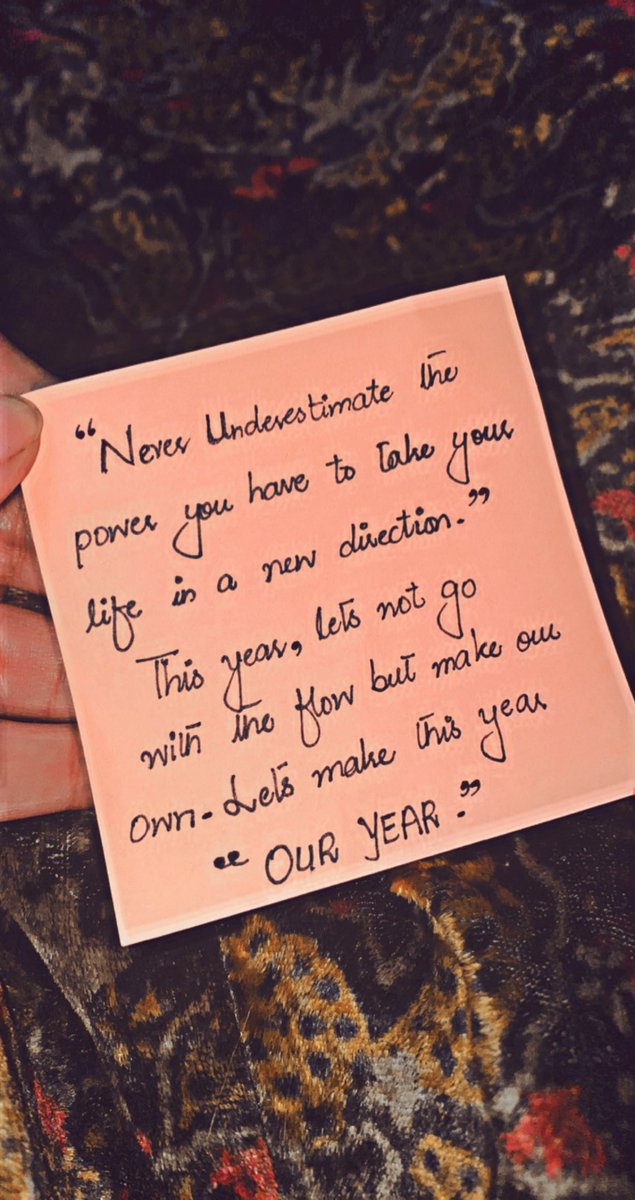 “Never Underestimate the
power you have to take your
life in a new direction.”
This year, let's not go
with the flow but make our
own. Let's make this year
“ OUR YEAR .”